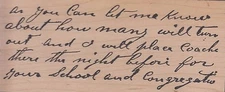 as you can let me know
about how many will turn
out and I will place coache
there the night before for
your School and Congregatio